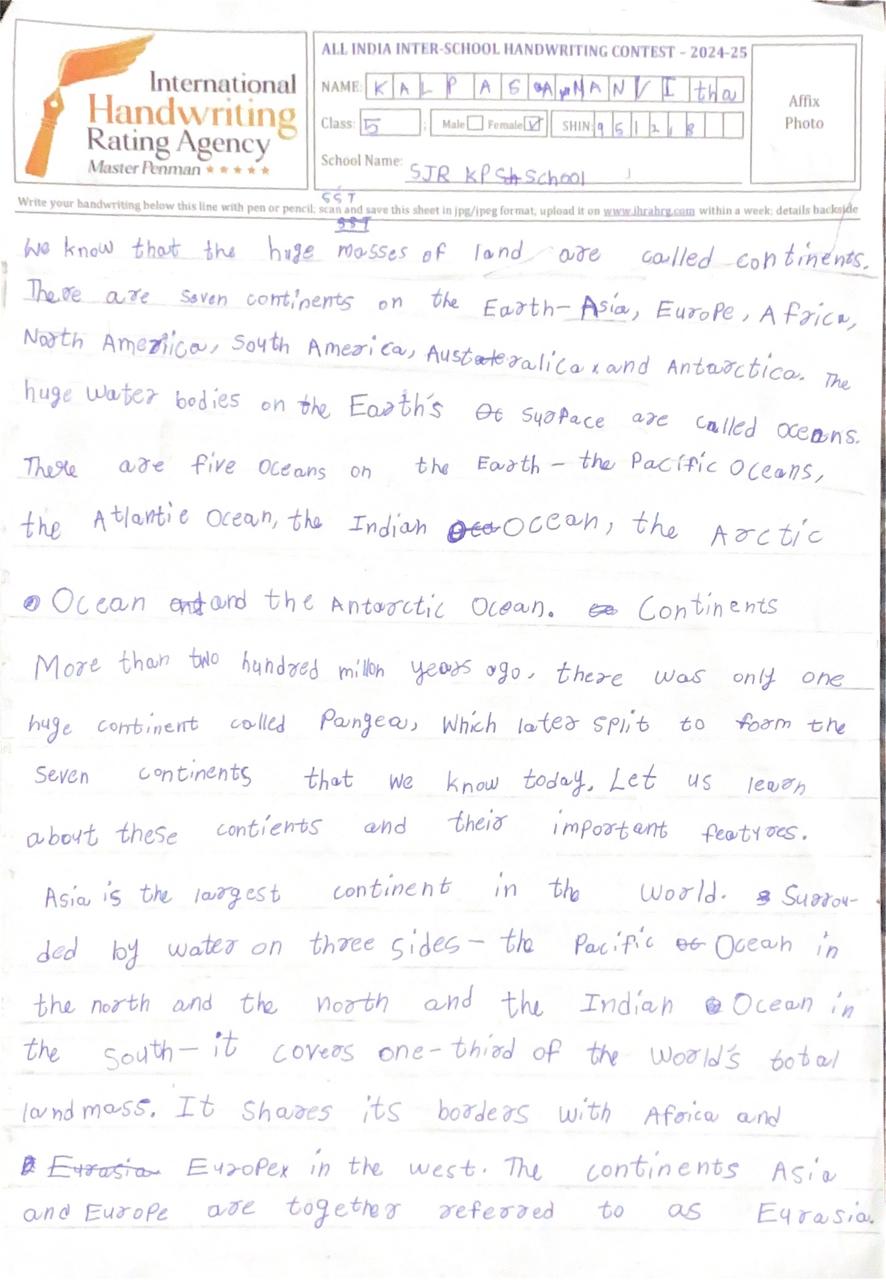 International
Handwriting
Rating Agency
Master Penman ★★★★★
ALL INDIA INTER-SCHOOL HANDWRITING CONTEST – 2024-25
NAME: KALPA SAMANVI tha
Class: 5 Male Female SHIN: 95128
Affix
Photo
School Name: SJR KPS School
SST
Write your handwriting below this line with pen or pencil; scan and save this sheet in jpg/jpeg format, upload it on www.ihrahrg.com within a week; details backside
SST
We know that the huge masses of land are called continents.
There are seven continents on the Earth- Asia, Europe, Africa,
North Ameriica, South America, Austeralica and Antarctica. The
huge water bodies on the Earth's surface are called oceans.
There are five oceans on the Earth - the Pacific Oceans,
the Atlantic Ocean, the Indian Ocean, the Arctic
Ocean and the Antarctic Ocean. Continents
More than two hundred millon years ago, there was only one
huge continent called Pangea, Which later split to form the
seven continents that we know today. Let us learn
about these contients and their important features.
Asia is the largest continent in the World. Surrou-
ded by water on three sides - the Pacific Ocean in
the north and the north and the Indian Ocean in
the south - it covers one-third of the World's total
landmass. It shares its borders with Africa and
Eurasia Europe in the west. The continents Asia
and Europe are together referred to as Eurasia.